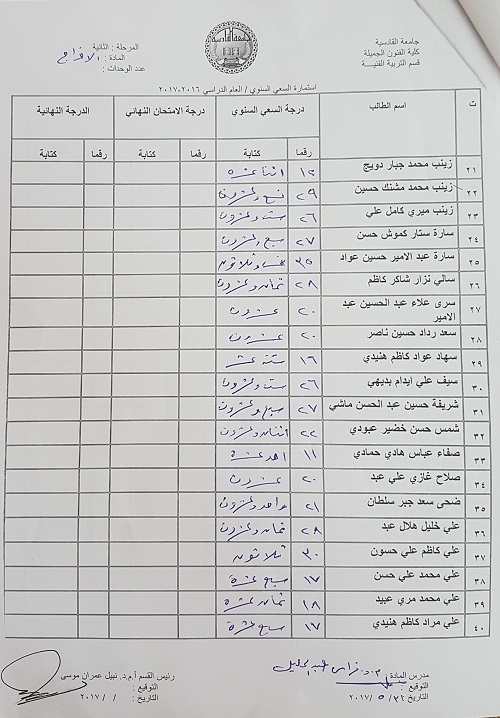 جامعة القادسية
كلية الفنون الجميلة
قسم التربية الفنيـــة
المرحلة : الثانية
المادة : الاخراج
عدد الوحدات :
استمارة السعي السنوي / العام الدراسي ٢٠١٦-٢٠١٧
ت اسم الطالب درجة السعي السنوي درجة الامتحان النهائي الدرجة النهائية
رقما كتابة رقما كتابة رقما كتابة
٢١ زينب محمد جبار دويج ١٢ اثنا عشرة
٢٢ زينب محمد مشنك حسين ٢٩ تسع وعشرون
٢٣ زينب ميري كامل علي ٢٦ ست وعشرون
٢٤ سارة ستار كموش حسن ٢٧ سبع وعشرون
٢٥ سارة عبد الامير حسين عواد ٣٥ خمس وثلاثون
٢٦ سالي نزار شاكر كاظم ٢٨ ثمان وعشرون
٢٧ سرى علاء عبد الحسين عبد الامير ٢٠ عشرون
٢٨ سعد رداد حسين ناصر ٢٠ عشرون
٢٩ سهاد عواد كاظم هنيدي ١٦ ستة عشر
٣٠ سيف علي ايدام بديهي ٢٦ ست وعشرون
٣١ شريفة حسين عبد الحسن ماشي ٢٧ سبع وعشرون
٣٢ شمس حسن خضير عبودي ٢٢ اثنان وعشرون
٣٣ صفاء عباس هادي حمادي ١١ احد عشرة
٣٤ صلاح غازي علي عبد ٢٠ عشرون
٣٥ ضحى سعد جبر سلطان ٢١ واحد وعشرون
٣٦ علي خليل هلال عبد ٢٨ ثمان وعشرون
٣٧ علي كاظم علي حسون ٣٠ ثلاثون
٣٨ علي محمد علي حسن ١٧ سبع عشرة
٣٩ علي محمد مري عبيد ١٨ ثمان عشرة
٤٠ علي مراد كاظم هنيدي ١٧ سبع عشرة
مدرس المادة : م.د.
التوقيع :
التاريخ : ٢٢ / ٥ / ٢٠١٧
رئيس القسم أ.م.د. نبيل عمران موسى
التوقيع :
التاريخ : / / ٢٠١٧